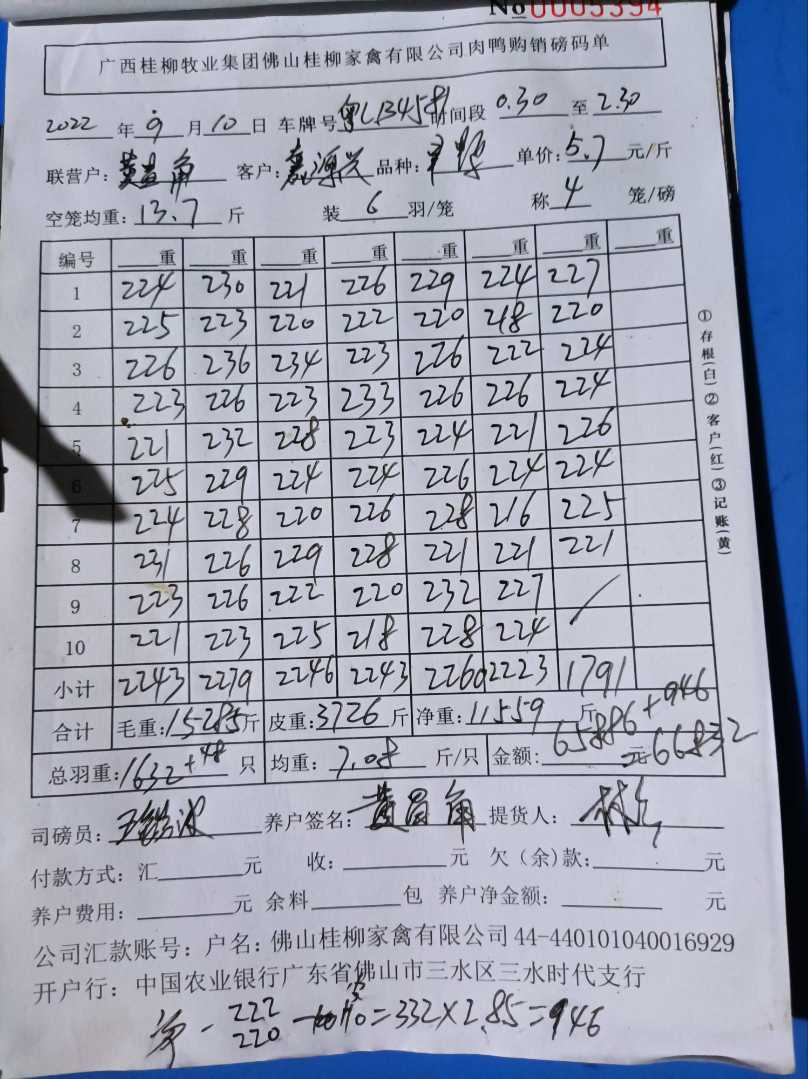 No 0005394
广西桂柳牧业集团佛山桂柳家禽有限公司肉鸭购销磅码单
2022 年 9 月 10 日 车牌号 粤LB4581 时间段 0.30 至 2.30
联营户: 黄昌角 客户: 品种: 单价: 5.7 元/斤
空笼均重: 13.7 斤 装 6 羽/笼 称 4 笼/磅
编号 重 重 重 重 重 重 重 重
1 224 230 221 226 229 224 227
2 225 223 220 222 220 218 220
3 226 236 234 223 226 222 224
4 223 226 223 233 226 226 224
5 221 232 228 223 224 221 226
6 225 229 224 224 226 224 224
7 224 228 220 226 228 216 225
8 231 226 229 228 221 221 221
9 223 226 222 220 232 227
10 221 223 225 218 228 224
小计 2243 2279 2246 2243 2260 2223 1791
合计 毛重: 15285 斤 皮重: 3726 斤 净重: 11559 斤
总羽重: 1632+48 只 均重: 7.08 斤/只 金额: 65886+946=66832 元
司磅员: 养户签名: 黄昌角 提货人:
付款方式: 汇 元 收: 元 欠(余)款: 元
养户费用: 元 余料 包 养户净金额: 元
公司汇款账号: 户名: 佛山桂柳家禽有限公司 44-440101040016929
开户行: 中国农业银行广东省佛山市三水区三水时代支行
222
220 =332×2.85=946
①存根(白)②客户(红)③记账(黄)